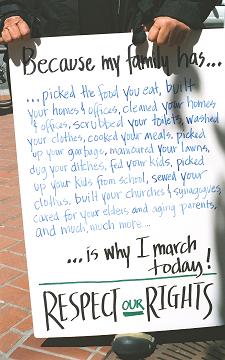 Because my family has...
...picked the food you eat, built
your homes & offices, cleaned your homes
& offices, scrubbed your toilets, washed
your clothes, cooked your meals, picked
up your garbage, manicured your lawns,
dug your ditches, fed your kids, picked
up your kids from school, sewed your
clothes, built your churches & synagogues,
cared for your elders and aging parents,
and much, much more...
...is why I march
today!
RESPECT OUR RIGHTS